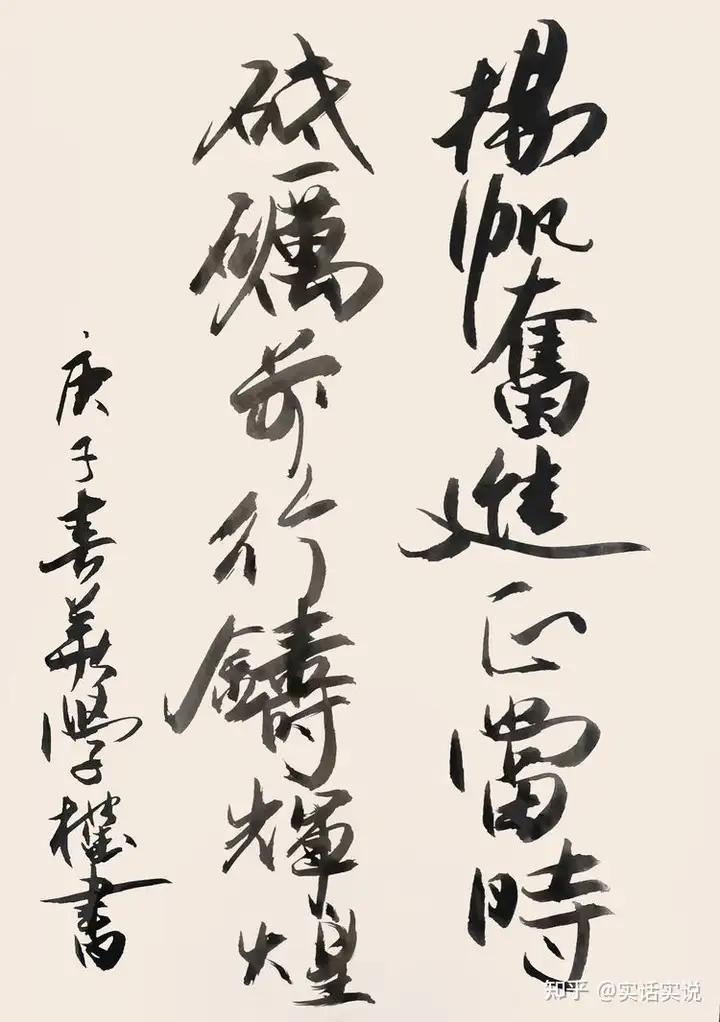 揚帆奮進正當時
砥礪前行鑄輝煌
庚子春學權書
知乎 @实话实说